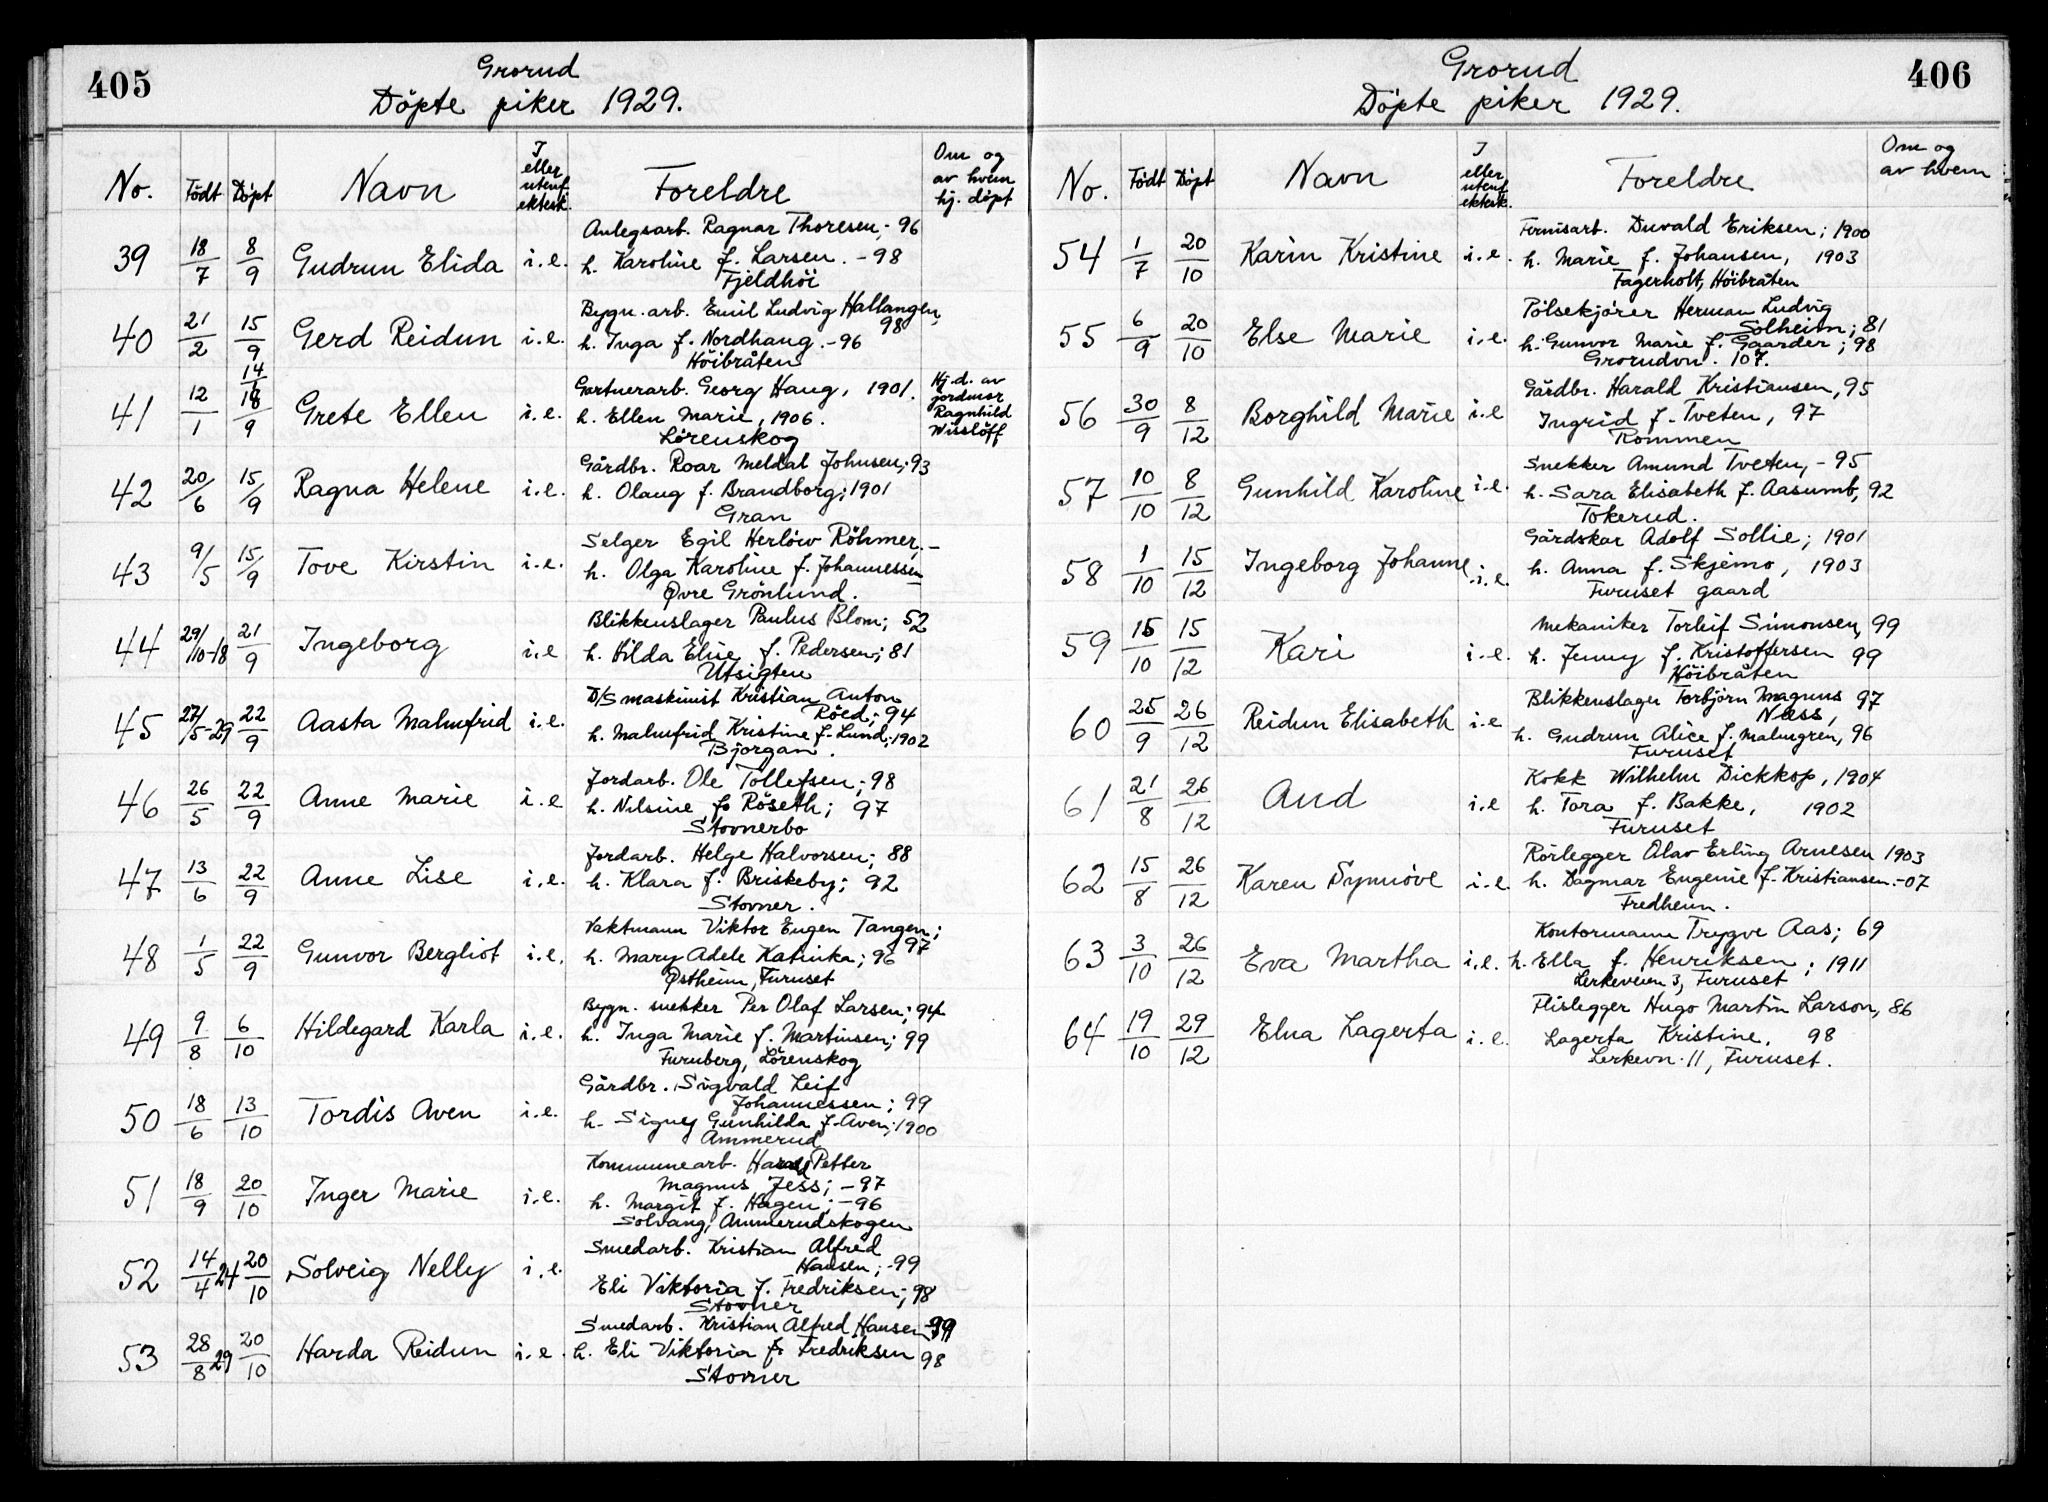 405
Grorud
Döpte piker 1929.
No. Födt Döpt Navn I eller utenf. ektesk. Foreldre Om og av hvem hj. döpt
Anlegsarb. Ragnar Thoresen; -96
39 18/7 8/9 Gudrun Elida i.e. h. Karoline f. Larsen. -98
Fjeldhöi
Bygn. arb. Emil Ludvig Hallangen, 98
40 21/2 15/9 Gerd Reidun i.e. h. Inga f. Nordhaug. -96
Höibråten
41 12/1 14/6 18/9 Grete Ellen i.e. Gartnerarb. Georg Haug, 1901. Hj.d. av
h. Ellen Marie, 1906. jordmor Ragnhild
Lörenskog Wisslöff
Gårdbr. Roar Meldal Johnsen; 93
42 20/6 15/9 Ragna Helene i.e. h. Olaug f. Brandborg; 1901
Gran
Selger Egil Herlöiv Röhmer, -
43 9/5 15/9 Tove Kirstin i.e. h. Olga Karoline f. Johannessen
Øvre Grönlund.
Blikkenslager Paulus Blom; 52
44 29/10-18 21/9 Ingeborg i.e h. Hilda Elise f. Pedersen; 81
Utsigten
D/S maskinist Kristian Anton
Röed; 94
45 27/5-29 22/9 Aasta Malmfrid i.e. h. Malmfrid Kristine f. Lund; 1902
Bjorgan.
Jordarb. Ole Tollefsen; 98
46 26/5 22/9 Anne Marie i.e h. Nilsine f. Röseth; 97
Stovnerbo
Jordarb. Helge Halvorsen; 88
47 13/6 22/9 Anne Lise i.e. h. Klara f. Briskeby; 92
Stovner.
Vaktmann Viktor Eugen Tangen; 97
48 1/5 22/9 Gunvor Bergliot i.e. h. Mary Adele Katinka; 96
Østheim, Furuset
Bygn. snekker Per Olaf Larsen; 94
49 9/8 6/10 Hildegard Karla i.e. h. Inga Marie f. Martinsen; 99
Furuberg, Lörenskog
Gårdbr. Sigvald Leif
Johannessen; 99
50 18/6 13/10 Tordis Aven i.e. h. Signey Gunhilda f. Aven; 1900
Ammerud
Kommunearb. Harald Petter
Magnus Jess; -97
51 18/9 20/10 Inger Marie i.e. h. Margit f. Hagen; -96
Solvang, Ammerudskogen
Smedarb. Kristian Alfred
Hansen; -99
52 14/4 24 20/10 Solveig Nelly i.e. Eli Viktoria f. Fredriksen; 98
Stovner
Smedarb. Kristian Alfred Hansen 99
53 28/8 29 20/10 Harda Reidun i.e. h. Eli Viktoria f. Fredriksen 98
Stovner
406
Grorud
Döpte piker 1929.
No. Födt Döpt Navn I eller utenf. ektesk. Foreldre Om og av hvem
Fernisarb. Duvald Eriksen; 1900
54 1/7 20/10 Karin Kristine i.e. h. Marie f. Johansen, 1903
Fagerholt, Höibråten
Pölsekjörer Herman Ludvig
Solheim; 81
55 6/9 20/10 Else Marie i.e. h. Gunvor Marie f. Gaarder; 98
Grorudvn. 107.
Gårdbr. Harald Kristiansen, 95
56 30/9 8/12 Borghild Marie i.e Ingrid f. Tveten, 97
Rommen
Snekker Amund Tveten, -95
57 10/10 8/12 Gunhild Karoline i.e. h. Sara Elisabeth f. Aasumb, 92
Tokerud.
Gårdskar Adolf Sollie; 1901
58 1/10 15/12 Ingeborg Johanne i.e. h. Anna f. Skjemo, 1903
Furuset gaard
Mekaniker Torleif Simonsen, 99
59 15/10 15/12 Kari i.e. h. Jenny f. Kristoffersen 99
Höibråten
Blikkenslager Torbjörn Magnus 97
Næss,
60 25/9 26/12 Reidun Elisabeth i.e h. Gudrun Alice f. Malmgren, 96
Furuset
Kokk Wilhelm Dickkop, 1904
61 21/8 26/12 Aud i.e h. Tora f. Bakke, 1902
Furuset
Rörlegger Olav Erling Arnesen 1903
62 15/8 26/12 Karen Synnöve i.e. h. Dagmar Eugenie f. Kristiansen.-07
Fredheim.
Kontormann Trygve Aas; 69
63 3/10 26/12 Eva Martha i.e. h. Ella f. Henriksen; 1911
Lerkeveien 3, Furuset
Flislegger Hugo Martin Larson, 86
64 19/10 29/12 Elna Lagerta i.e. Lagerta Kristine, 98
Lerkevn. 11, Furuset.